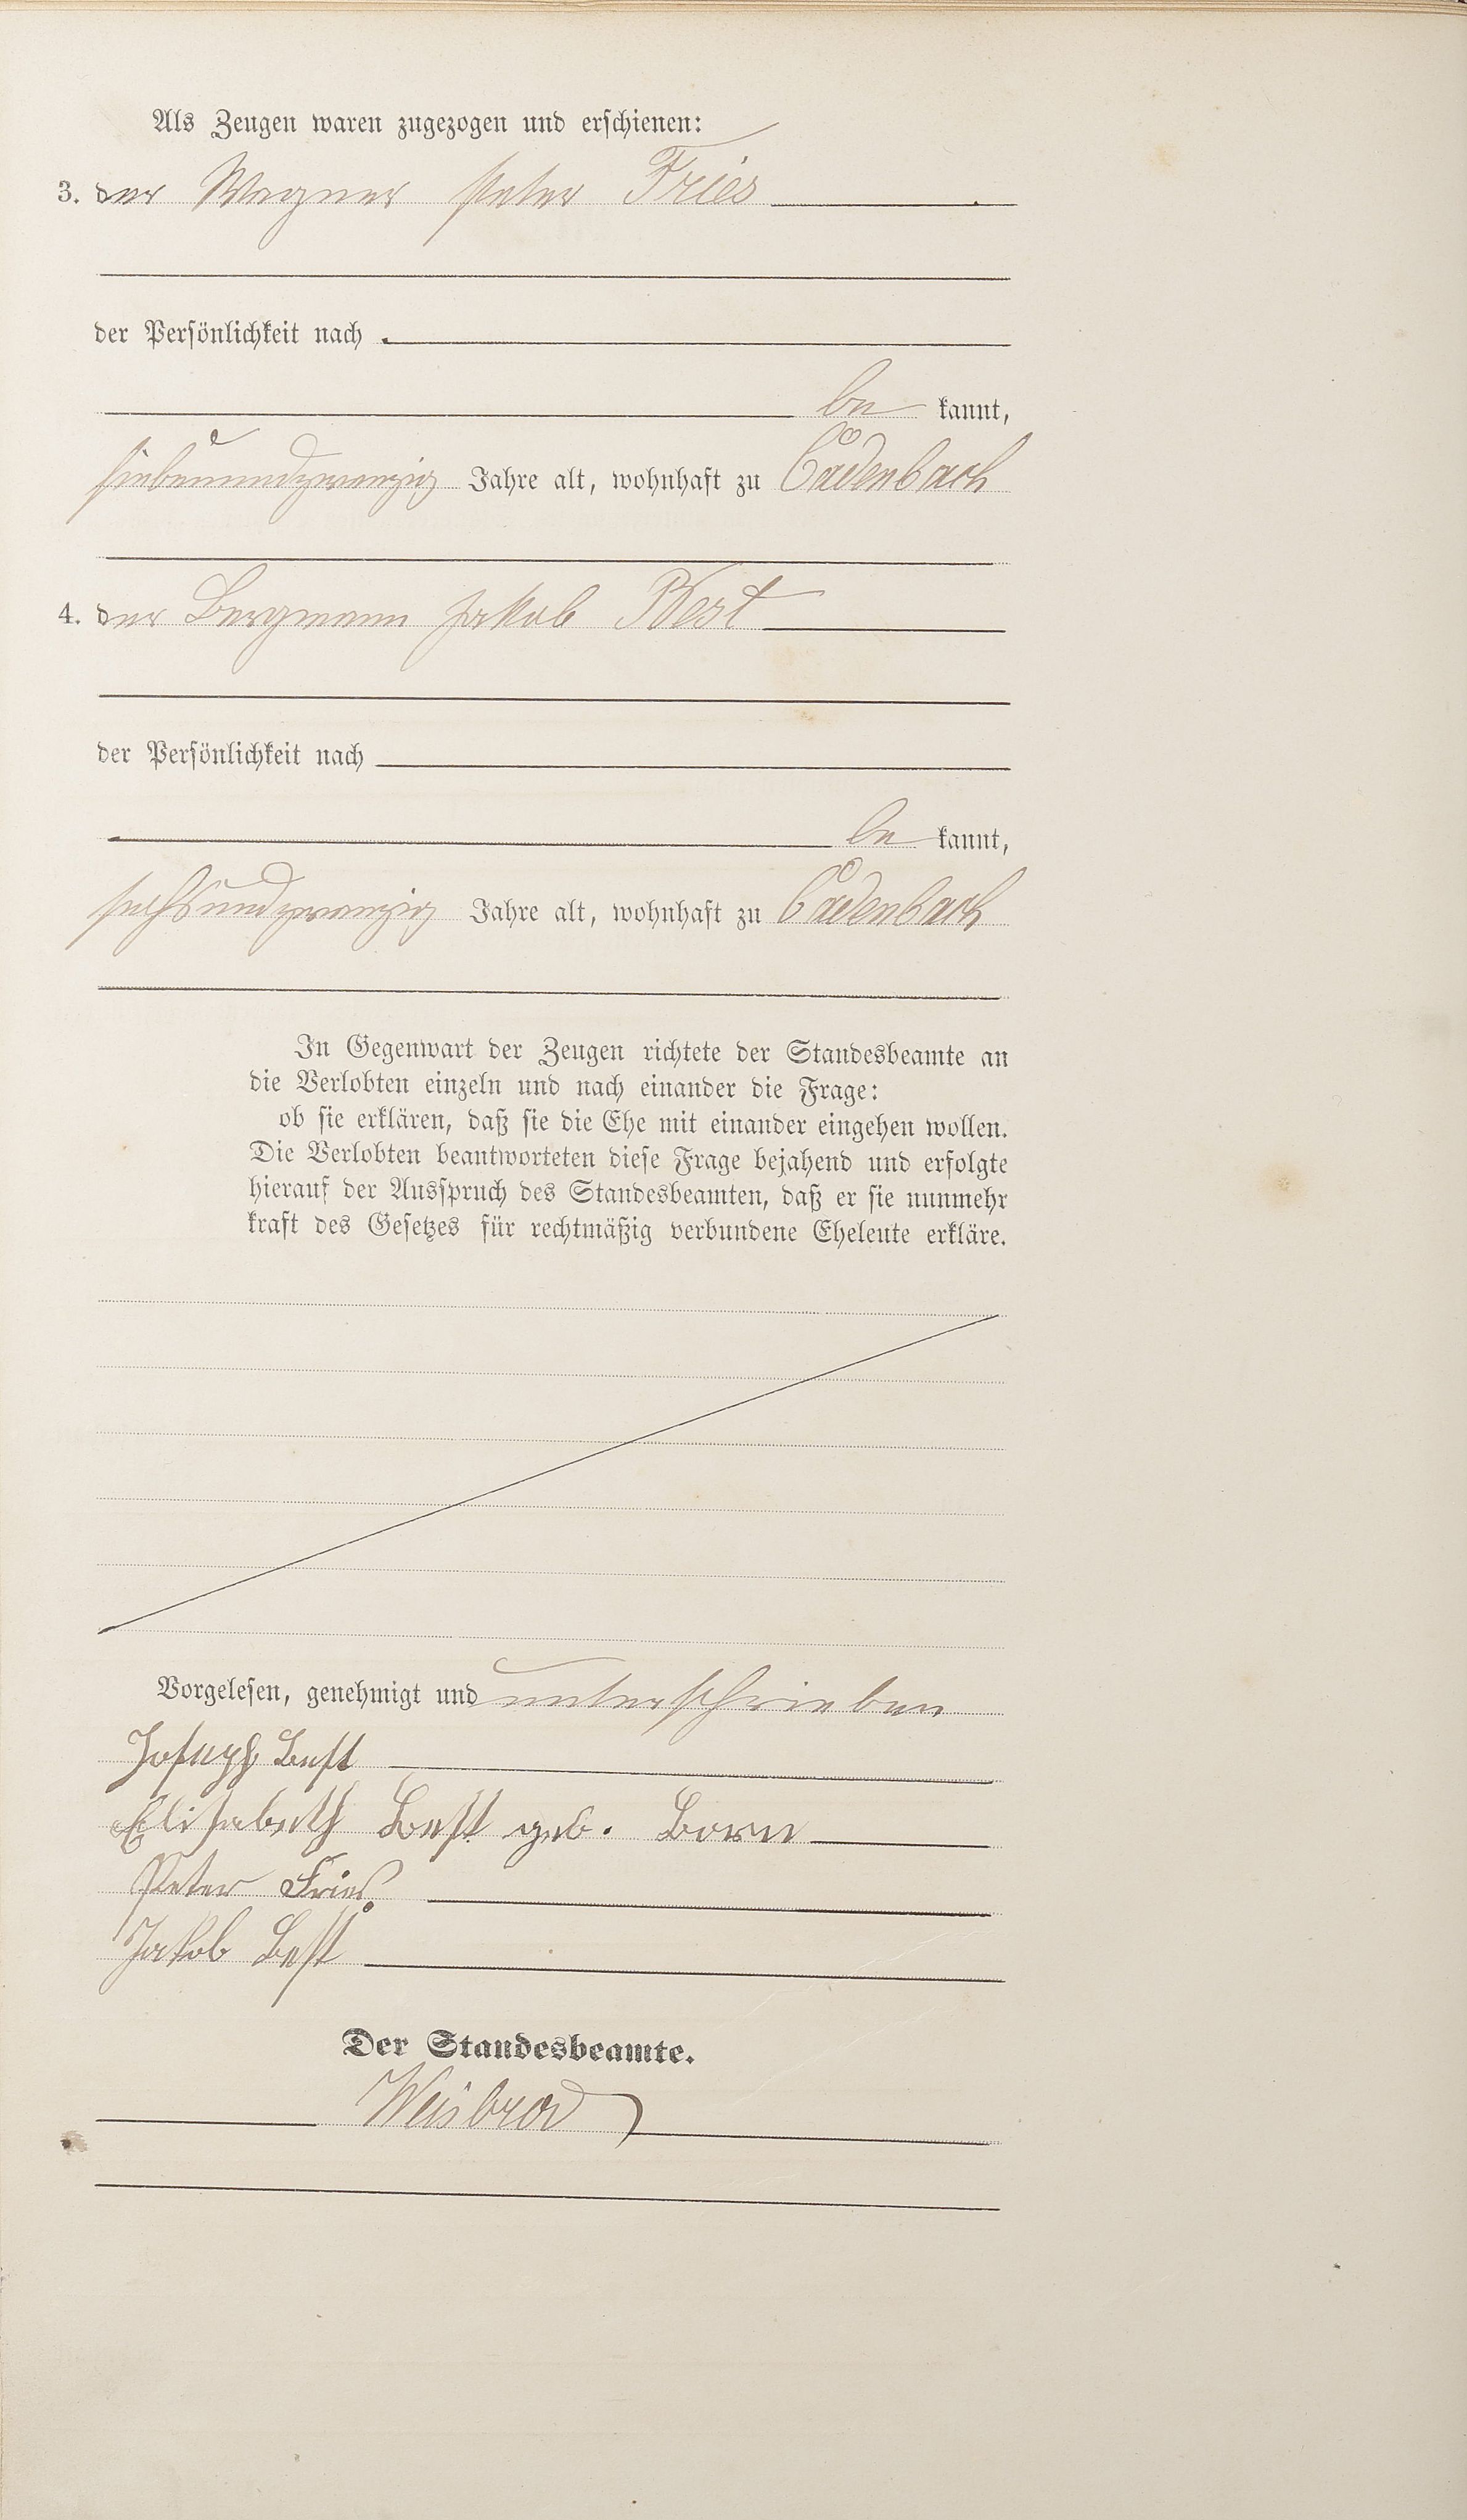 Als Zeugen waren zugezogen und erschienen:
3. der Wagner Peter Fries
der Persönlichkeit nach
be kannt,
siebenundzwanzig Jahre alt, wohnhaft zu Cådenbach
4. der Bergmann Jakob Best
der Persönlichkeit nach
be kannt,
sechsundzwanzig Jahre alt, wohnhaft zu Cådenbach
In Gegenwart der Zeugen richtete der Standesbeamte an
die Verlobten einzeln und nach einander die Frage:
ob sie erklären, daß sie die Ehe mit einander eingehen wollen.
Die Verlobten beantworteten diese Frage bejahend und erfolgte
hierauf der Ausspruch des Standesbeamten, daß er sie nunmehr
kraft des Gesetzes für rechtmäßig verbundene Eheleute erkläre.
Vorgelesen, genehmigt und unterschrieben
Joseph Best
Elisabeth Best geb. Born
Peter Fries.
Jakob Best
Der Standesbeamte.
Weisbrod